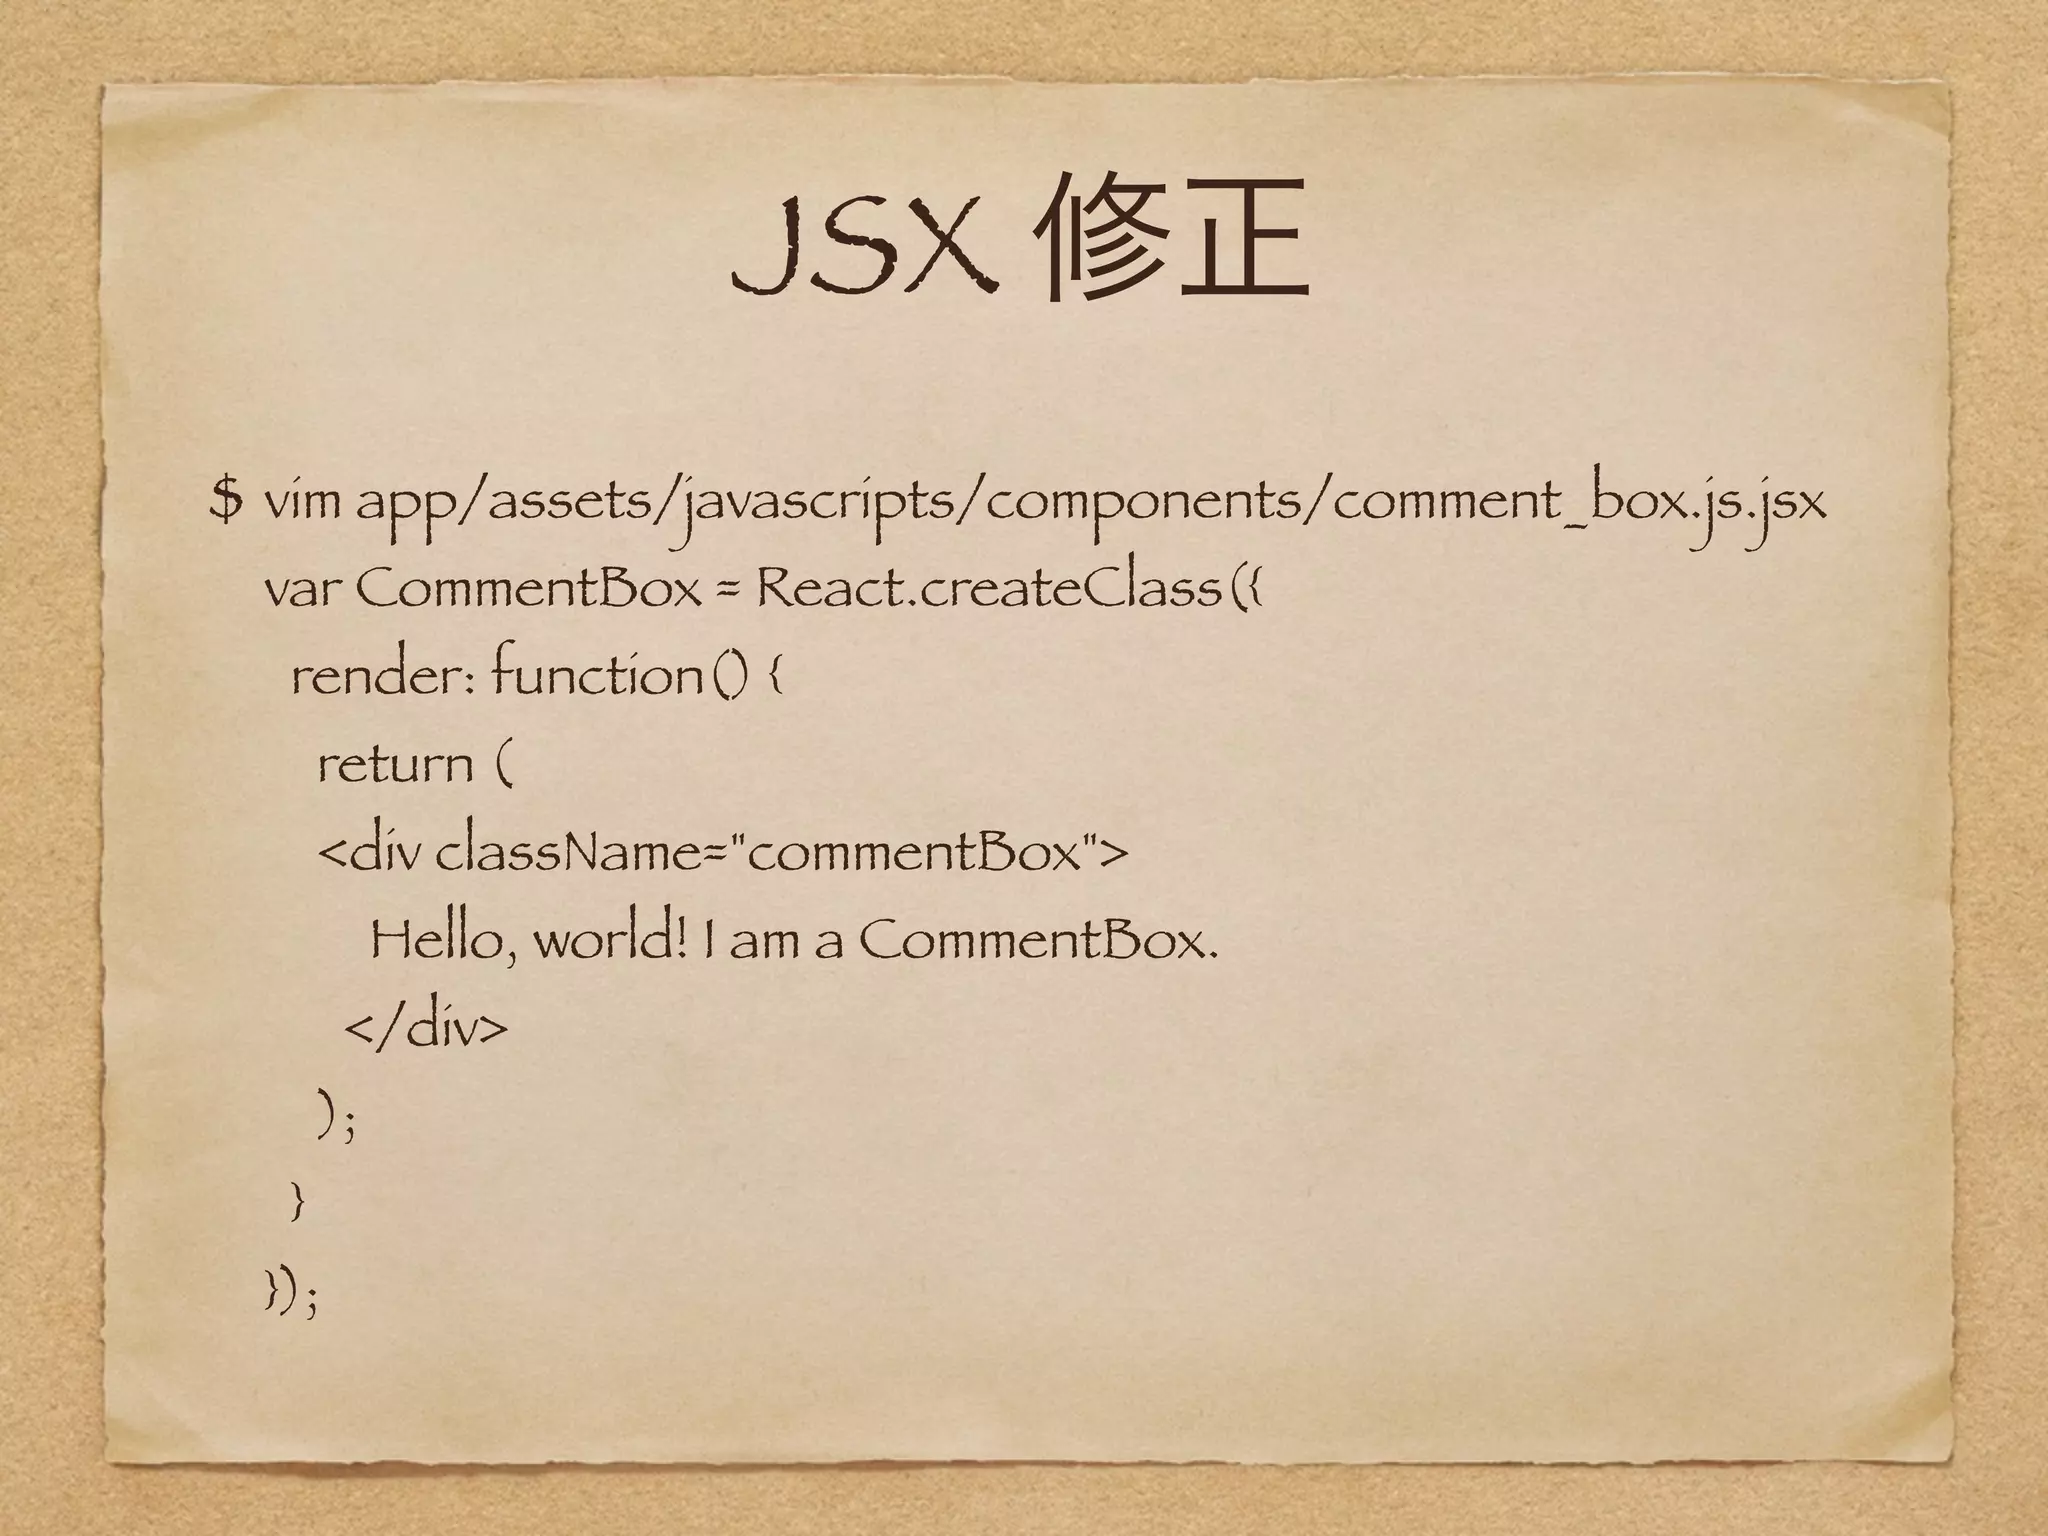 JSX 修正
$ vim app/assets/javascripts/components/comment_box.js.jsx
var CommentBox = React.createClass({
render: function() {
return (
<div className="commentBox">
Hello, world! I am a CommentBox.
</div>
);
}
});